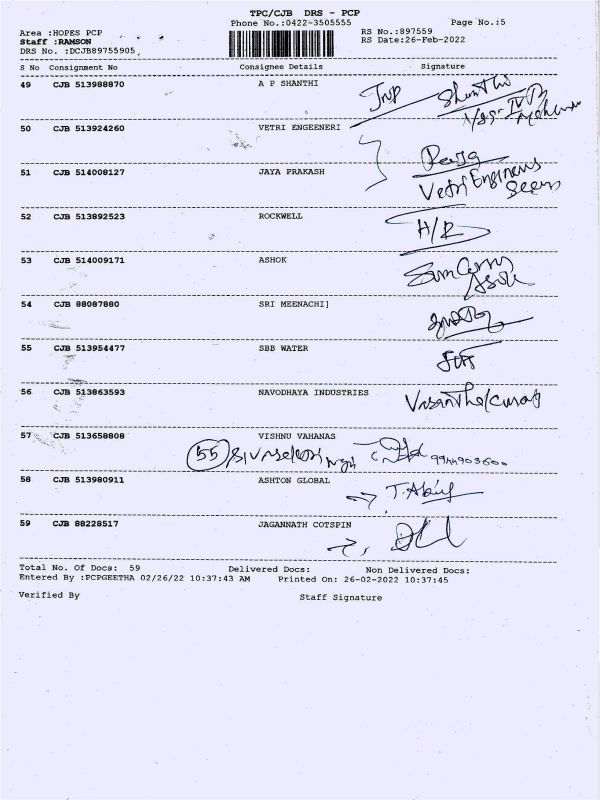 TPC/CJB DRS - PCP
Phone No.:0422-3505555
Page No.:5
Area :HOPES PCP
RS No.:897559
Staff :RAMSON
RS Date:26-Feb-2022
DRS No. :DCJB89755905,
S No Consignment No Consignee Details Signature
49 CJB 513988870 A P SHANTHI Shanthi
50 CJB 513924260 VETRI ENGEENERI
51 CJB 514008127 JAYA PRAKASH Vetri Engineers
52 CJB 513892523 ROCKWELL H/R
53 CJB 514009171 ASHOK
54 CJB 88087880 SRI MEENACHI]
55 CJB 513954477 SBB WATER
56 CJB 513863593 NAVODHAYA INDUSTRIES
57 CJB 513658808 VISHNU VAHANAS
55 9944903600
58 CJB 513980911 ASHTON GLOBAL
59 CJB 88228517 JAGANNATH COTSPIN
Total No. Of Docs: 59 Delivered Docs: Non Delivered Docs:
Entered By :PCPGEETHA 02/26/22 10:37:43 AM Printed On: 26-02-2022 10:37:45
Verified By Staff Signature